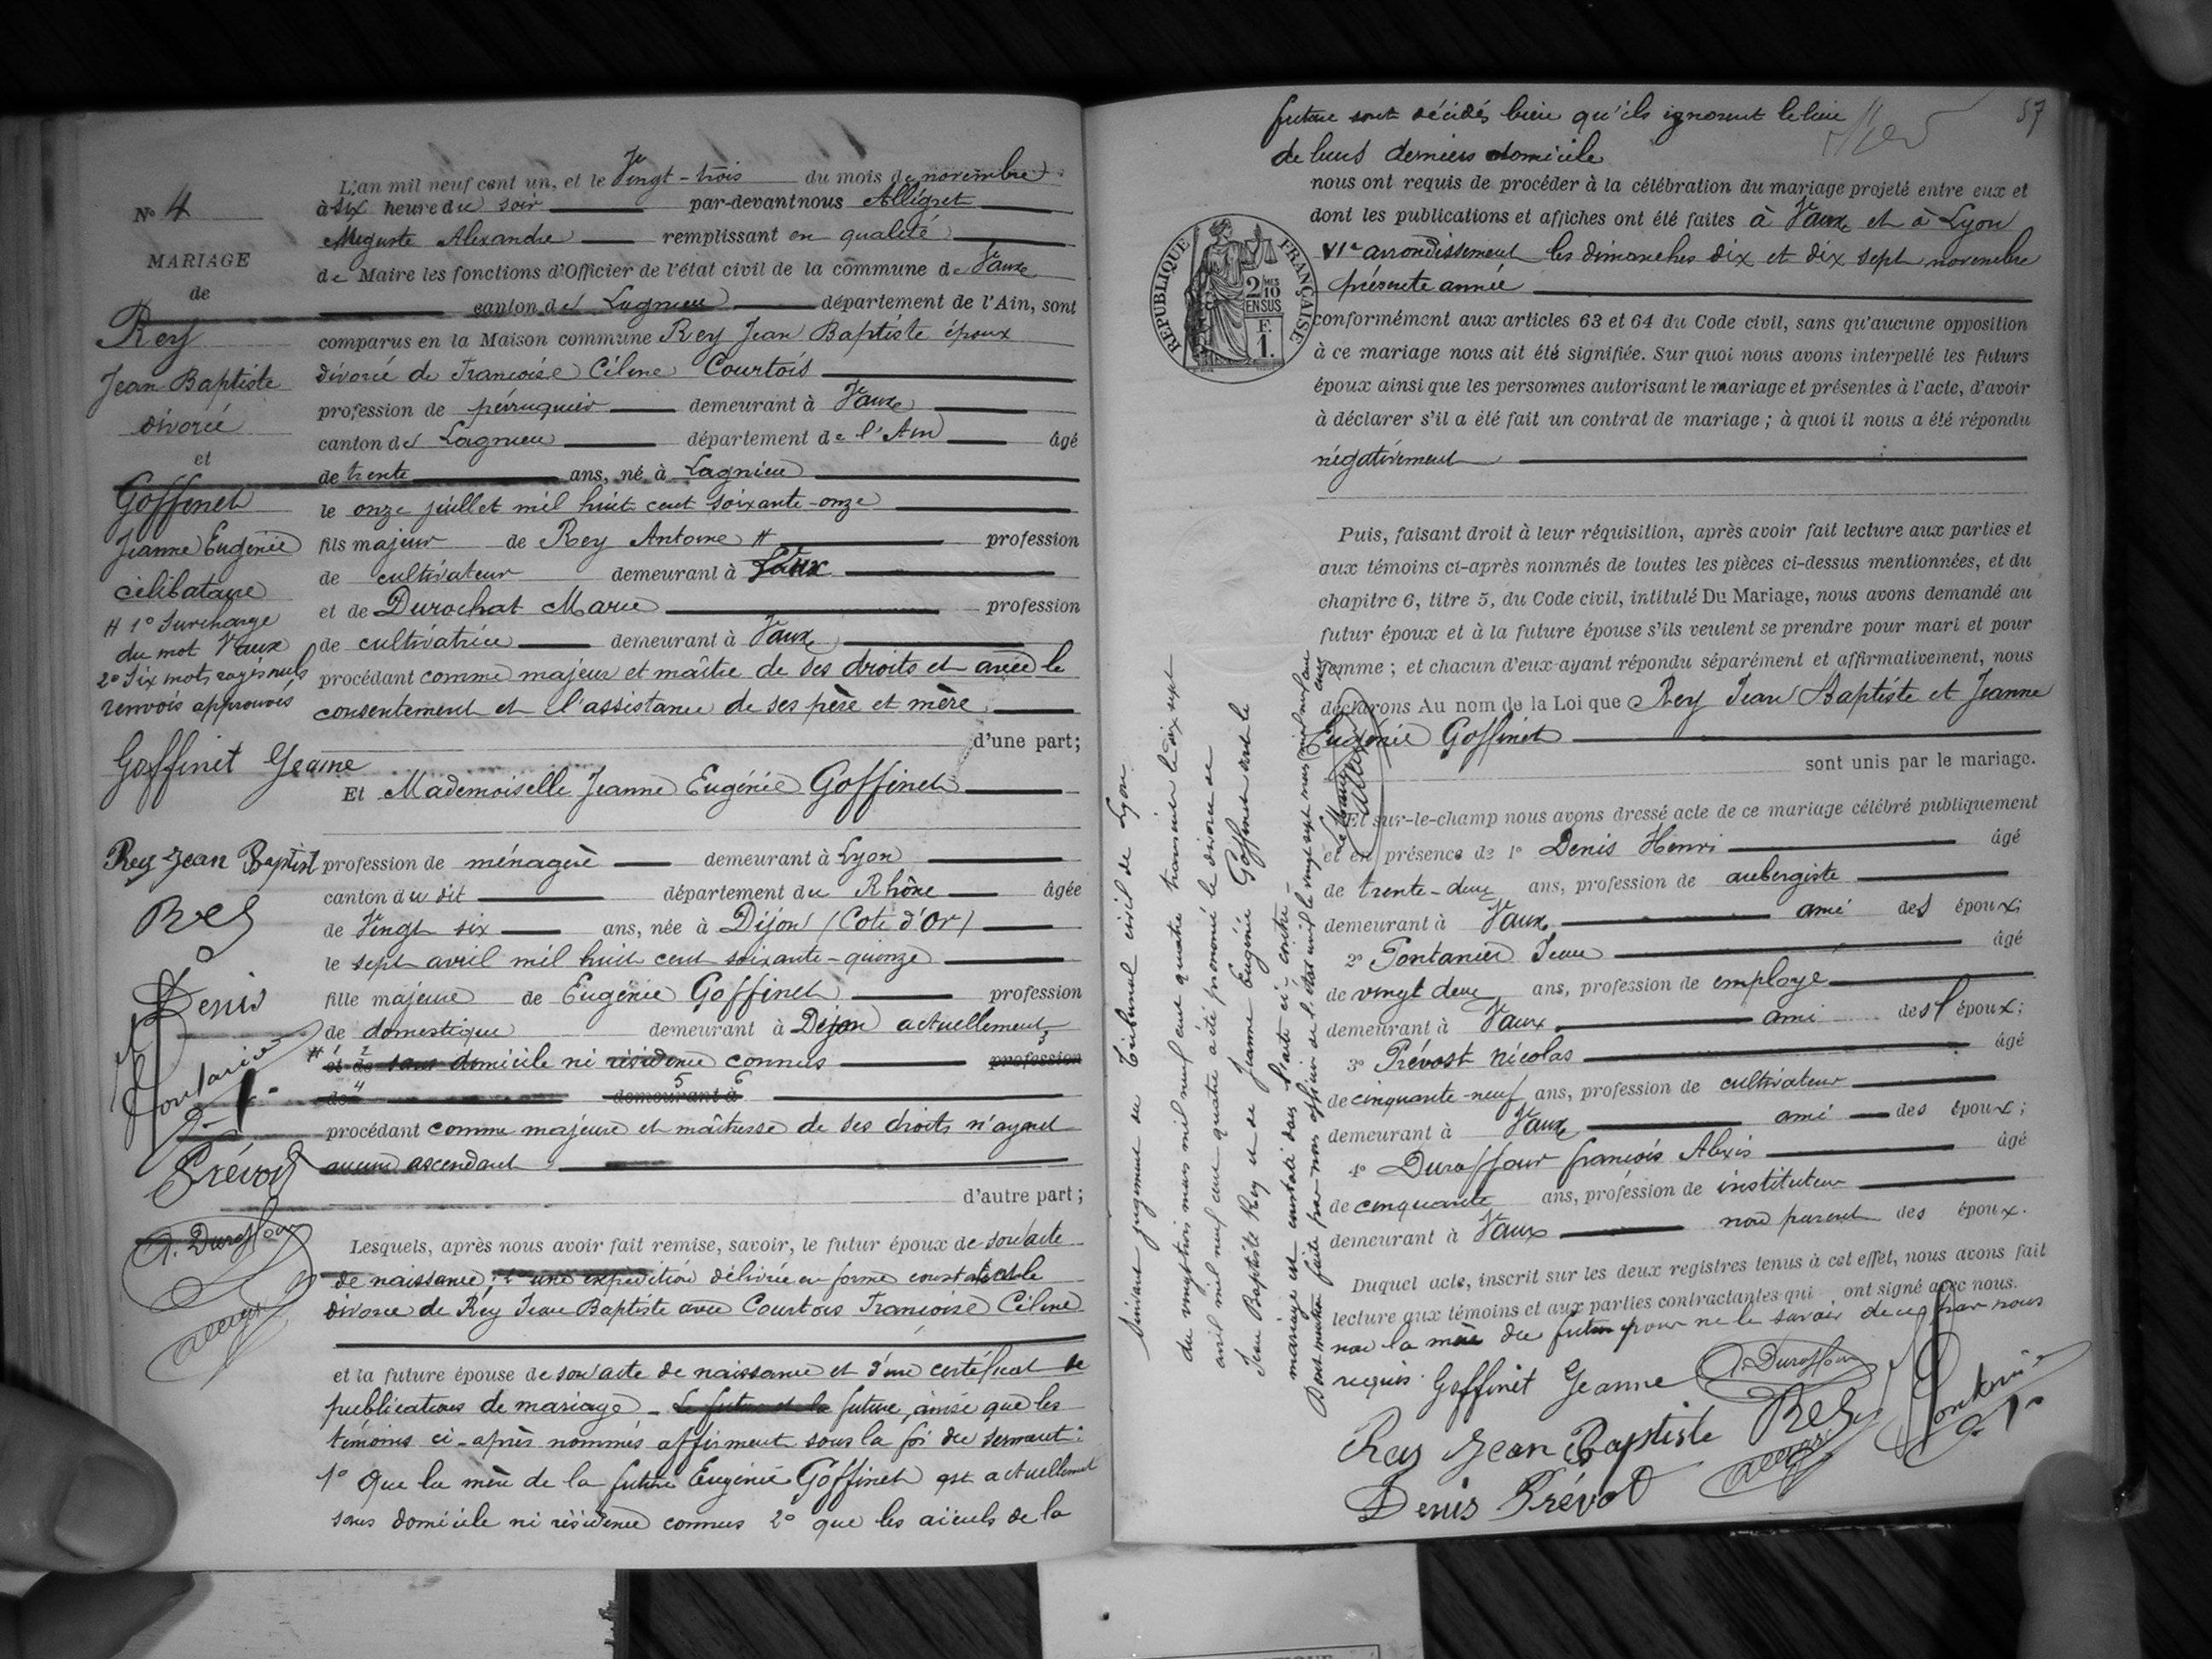 N° 4
MARIAGE
de
Rey
Jean Baptiste
divorcé
et
Goffinet
Jeanne Eugénie
célibataire
# 1° Surcharge
du mot Vaux
2° Six mots rayés nuls
renvois approuvés
Goffinet Jeanne
Rey Jean Baptist
Rey
Denis
Fontanier
Prévost
A. Duraffour
L'an mil neuf cent un, et le Vingt-trois du mois de novembre
à six heure du soir par-devant nous Allégret
Auguste Alexandre remplissant en qualité
de Maire les fonctions d'Officier de l'état civil de la commune de Vaux
canton de Lagnieu département de l'Ain, sont
comparus en la Maison commune Rey Jean Baptiste époux
divorcé de Françoise Céline Courtois
profession de perruquier demeurant à Vaux
canton de Lagnieu département de l'Ain âgé
de trente ans, né à Lagnieu
le onze juillet mil huit cent soixante-onze
fils majeur de Rey Antoine # profession
de cultivateur demeurant à Vaux
et de Durochat Marie profession
de cultivatrice demeurant à Vaux
procédant comme majeur et maître de ses droits et avec le
consentement et l'assistance de ses père et mère
d'une part;
Et Mademoiselle Jeanne Eugénie Goffinet
profession de ménagère demeurant à Lyon
canton du dit département du Rhône âgée
de Vingt six ans, née à Dijon (Cote d'Or)
le sept avril mil huit cent soixante-quinze
fille majeure de Eugénie Goffinet profession
de domestique demeurant à Dijon actuellement
# et de sans domicile ni résidence connus profession
de demeurant à
procédant comme majeure et maîtresse de ses droits n'ayant
aucun ascendant
d'autre part;
Lesquels, après nous avoir fait remise, savoir, le futur époux de son acte
de naissance; 2° une expédition délivrée en forme constatant le
divorce de Rey Jean Baptiste avec Courtois Françoise Céline
et la future épouse de son acte de naissance et d'un certificat de
publications de mariage - Le futur et la future, ainsi que les
témoins ci-après nommés affirment sous la foi du serment:
1° Que la mère de la future Eugénie Goffinet est actuellement
sans domicile ni résidence connus 2° que les aïeuls de la
57
future sont décédés bien qu'ils ignorent le lieu
de leurs derniers domicile
nous ont requis de procéder à la célébration du mariage projeté entre eux et
dont les publications et affiches ont été faites à Vaux et à Lyon
VIe arrondissement les dimanches dix et dix sept novembre
présente année
RÉPUBLIQUE FRANÇAISE
2/10 MES
EN SUS
F.
1.
conformément aux articles 63 et 64 du Code civil, sans qu'aucune opposition
à ce mariage nous ait été signifiée. Sur quoi nous avons interpellé les futurs
époux ainsi que les personnes autorisant le mariage et présentes à l'acte, d'avoir
à déclarer s'il a été fait un contrat de mariage; à quoi il nous a été répondu
négativement
Puis, faisant droit à leur réquisition, après avoir fait lecture aux parties et
aux témoins ci-après nommés de toutes les pièces ci-dessus mentionnées, et du
chapitre 6, titre 5, du Code civil, intitulé Du Mariage, nous avons demandé au
futur époux et à la future épouse s'ils veulent se prendre pour mari et pour
femme; et chacun d'eux ayant répondu séparément et affirmativement, nous
déclarons Au nom de la Loi que Rey Jean Baptiste et Jeanne
Eugénie Goffinet
sont unis par le mariage.
Et sur-le-champ nous avons dressé acte de ce mariage célébré publiquement
et en présence de 1° Denis Henri âgé
de trente-deux ans, profession de aubergiste
demeurant à Vaux ami des époux;
2° Fontanier Jean âgé
de vingt deux ans, profession de employé
demeurant à Vaux ami des époux;
3° Prévost Nicolas âgé
de cinquante-neuf ans, profession de cultivateur
demeurant à Vaux ami des époux;
4° Duraffour françois Alexis âgé
de cinquante ans, profession de instituteur
demeurant à Vaux non parent des époux.
Duquel acte, inscrit sur les deux registres tenus à cet effet, nous avons fait
lecture aux témoins et aux parties contractantes qui ont signé avec nous.
non la mère du futur pour ne le savoir de ce par nous
requis. Goffinet Jeanne A. Duraffour
Rey Jean Baptiste Rey Fontanier
Denis Prévot
Suivant jugement du Tribunal civil de Lyon
du vingt trois mars mil neuf cent quatre transcrit le dix sept
avril mil neuf cent quatre a été prononcé le divorce de
Jean Baptiste Rey et de Jeanne Eugénie Goffinet dont le
mariage est constaté dans l'acte ci-contre
Dont mention faite par nous officier de l'état civil le vingt sept mai mil neuf cent
Le Maire